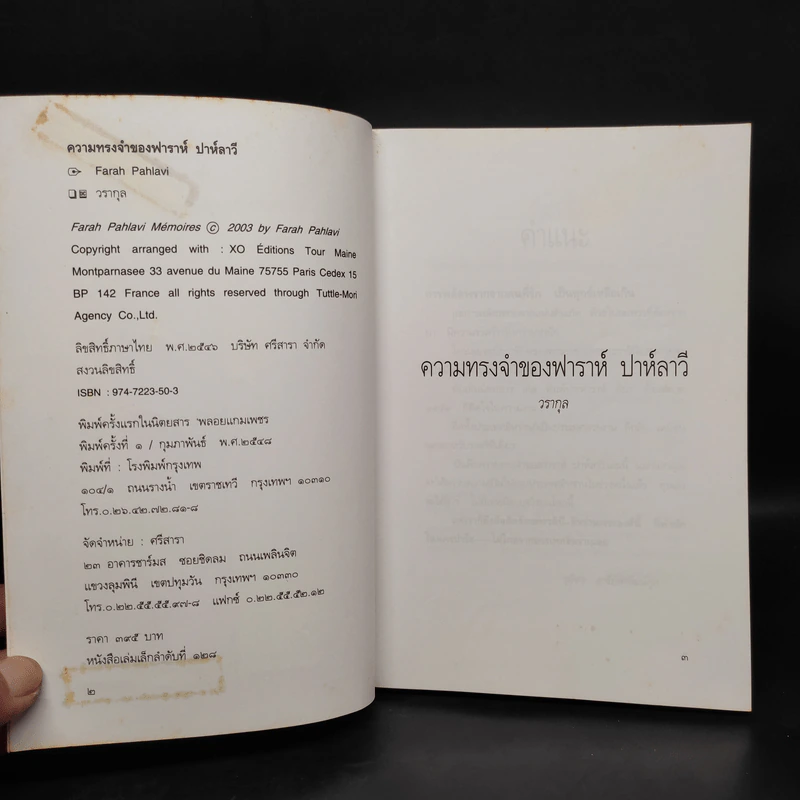 ความทรงจำของฟาราห์ ปาห์ลาวี
Farah Pahlavi
วรากุล
Farah Pahlavi Mémoires © 2003 by Farah Pahlavi
Copyright arranged with : XO Éditions Tour Maine
Montparnasee 33 avenue du Maine 75755 Paris Cedex 15
BP 142 France all rights reserved through Tuttle-Mori
Agency Co.,Ltd.
ลิขสิทธิ์ภาษาไทย พ.ศ.๒๕๔๖ บริษัท ศรีสารา จำกัด
สงวนลิขสิทธิ์
ISBN : 974-7223-50-3
พิมพ์ครั้งแรกในนิตยสาร 'พลอยแกมเพชร
พิมพ์ครั้งที่ ๑ / กุมภาพันธ์ พ.ศ.๒๕๔๘
พิมพ์ที่ : โรงพิมพ์กรุงเทพ
๑๐๔/๑ ถนนรางน้ำ เขตราชเทวี กรุงเทพฯ ๑๐๓๑๐
โทร.๐.๒๖.๔๒.๗๒.๘๑-๘
จัดจำหน่าย : ศรีสารา
๒๓ อาคารชาร์มส ซอยชิดลม ถนนเพลินจิต
แขวงลุมพินี เขตปทุมวัน กรุงเทพฯ ๑๐๓๓๐
โทร.๐.๒๒.๕๕.๕๕.๙๗-๘ แฟกซ์ ๐.๒๒.๕๕.๕๒.๑๒
ราคา ๓๙๕ บาท
หนังสือเล่มเล็กลำดับที่ ๑๒๘
๒
ความทรงจำของฟาราห์ ปาห์ลาวี
วรากุล
๓